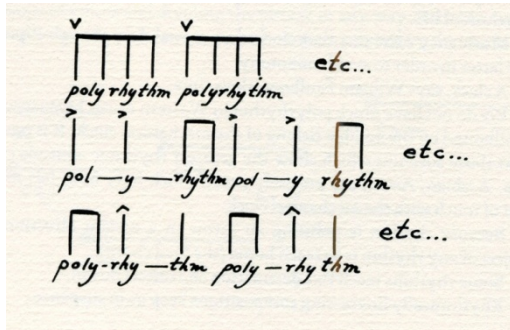 polyrhythm polyrhythm etc...
pol—y—rhythm pol—y rhythm etc...
poly-rhy—thm poly—rhy thm etc...